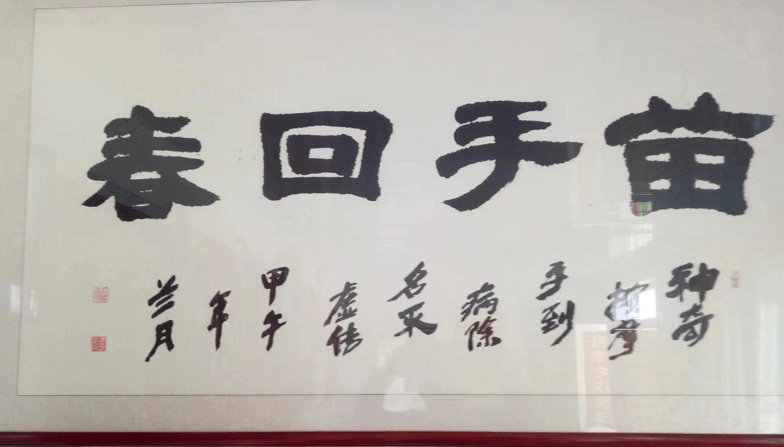 苗手回春
神奇
按摩
手到
病除
名不
虚传
甲午
年
兰月